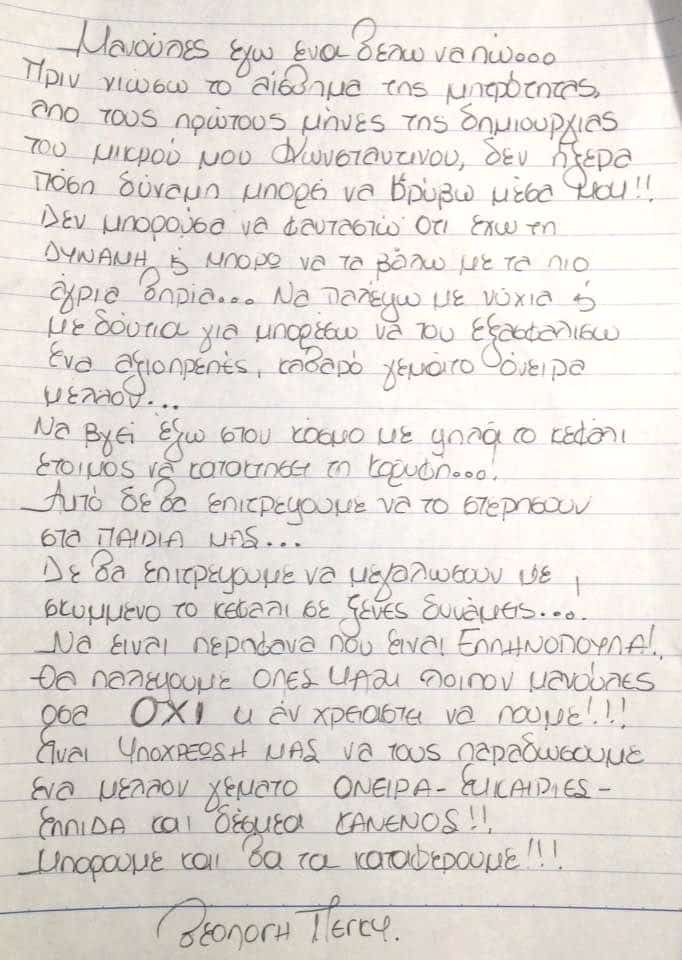 Μανούλες εγω ενα θελω να πω...
Πριν νιωσω το αίσθημα της μητρότητας,
απο τους πρώτους μήνες της δημιουργιας
του μικρού μου Κωνσταντινου, δεν ήξερα
Πόση δύναμη μπορεί να κρύβω μέσα μου!!
Δεν μπορούσα να φανταστώ ότι εχω τη
ΔΥΝΑΜΗ & μπορω να τα βάλω με τα πιο
άγρια θηρία... Να παλέψω με νύχια &
με δόντια για μπορέσω να του εξασφαλισω
ένα αξιοπρεπές, καθαρό γεμάτο όνειρα
μελλον...
Να βγεί έξω στον κόσμο με ψηλά το κεφάλι
έτοιμος να κατακτησει τη κορυφη...!
Αυτό δε θα επιτρεψουμε να το στερησουν
στα ΠΑΙΔΙΑ ΜΑΣ...
Δε θα επιτρεψουμε να μεγαλωσουν με
σκυμμενο το κεφαλι σε ξένες δυνάμεις....
Να ειναι περηφανα που ειναι ΕΛΛΗΝΟΠΟΥΛΑ!.
Θα παλεψουμε ΟΛΕΣ ΜΑΖΙ λοιπον μανούλες
οσα ΟΧΙ κι άν χρειαστει να πουμε!!!
Είναι ΥΠΟΧΡΕΩΣΗ ΜΑΣ να τους παραδωσουμε
ενα μελλον γεματο ΟΝΕΙΡΑ - ΕΥΚΑΙΡΙΕΣ -
ΕΛΠΙΔΑ και δέσμεα ΚΑΝΕΝΟΣ!!.
Μπορουμε και θα τα καταφερουμε!!!